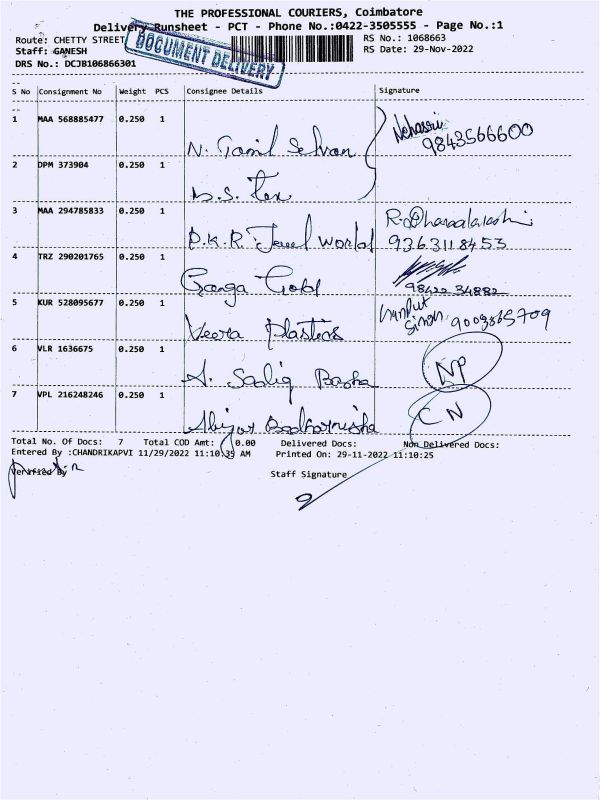 THE PROFESSIONAL COURIERS, Coimbatore
Delivery Runsheet - PCT - Phone No.:0422-3505555 - Page No.:1
Route: CHETTY STREET RS No.: 1068663
Staff: GANESH RS Date: 29-Nov-2022
DRS No.: DCJB106866301
DOCUMENT DELIVERY
S No Consignment No Weight PCS Consignee Details Signature
1 MAA 568885477 0.250 1 N. Tamil Selvan 9843566600
2 DPM 373904 0.250 1 D.S. Tex
3 MAA 294785833 0.250 1 D.K.R Jewel World 9363118453
4 TRZ 290201765 0.250 1 Ganga Gold 98422 34882
5 KUR 528095677 0.250 1 Veera Plastics 9003365709
6 VLR 1636675 0.250 1 A. Sadiq Basha NP
7 VPL 216248246 0.250 1 CN
Total No. Of Docs: 7 Total COD Amt: 0.00 Delivered Docs: Non Delivered Docs:
Entered By :CHANDRIKAPVI 11/29/2022 11:10:35 AM Printed On: 29-11-2022 11:10:25
Verified By Staff Signature